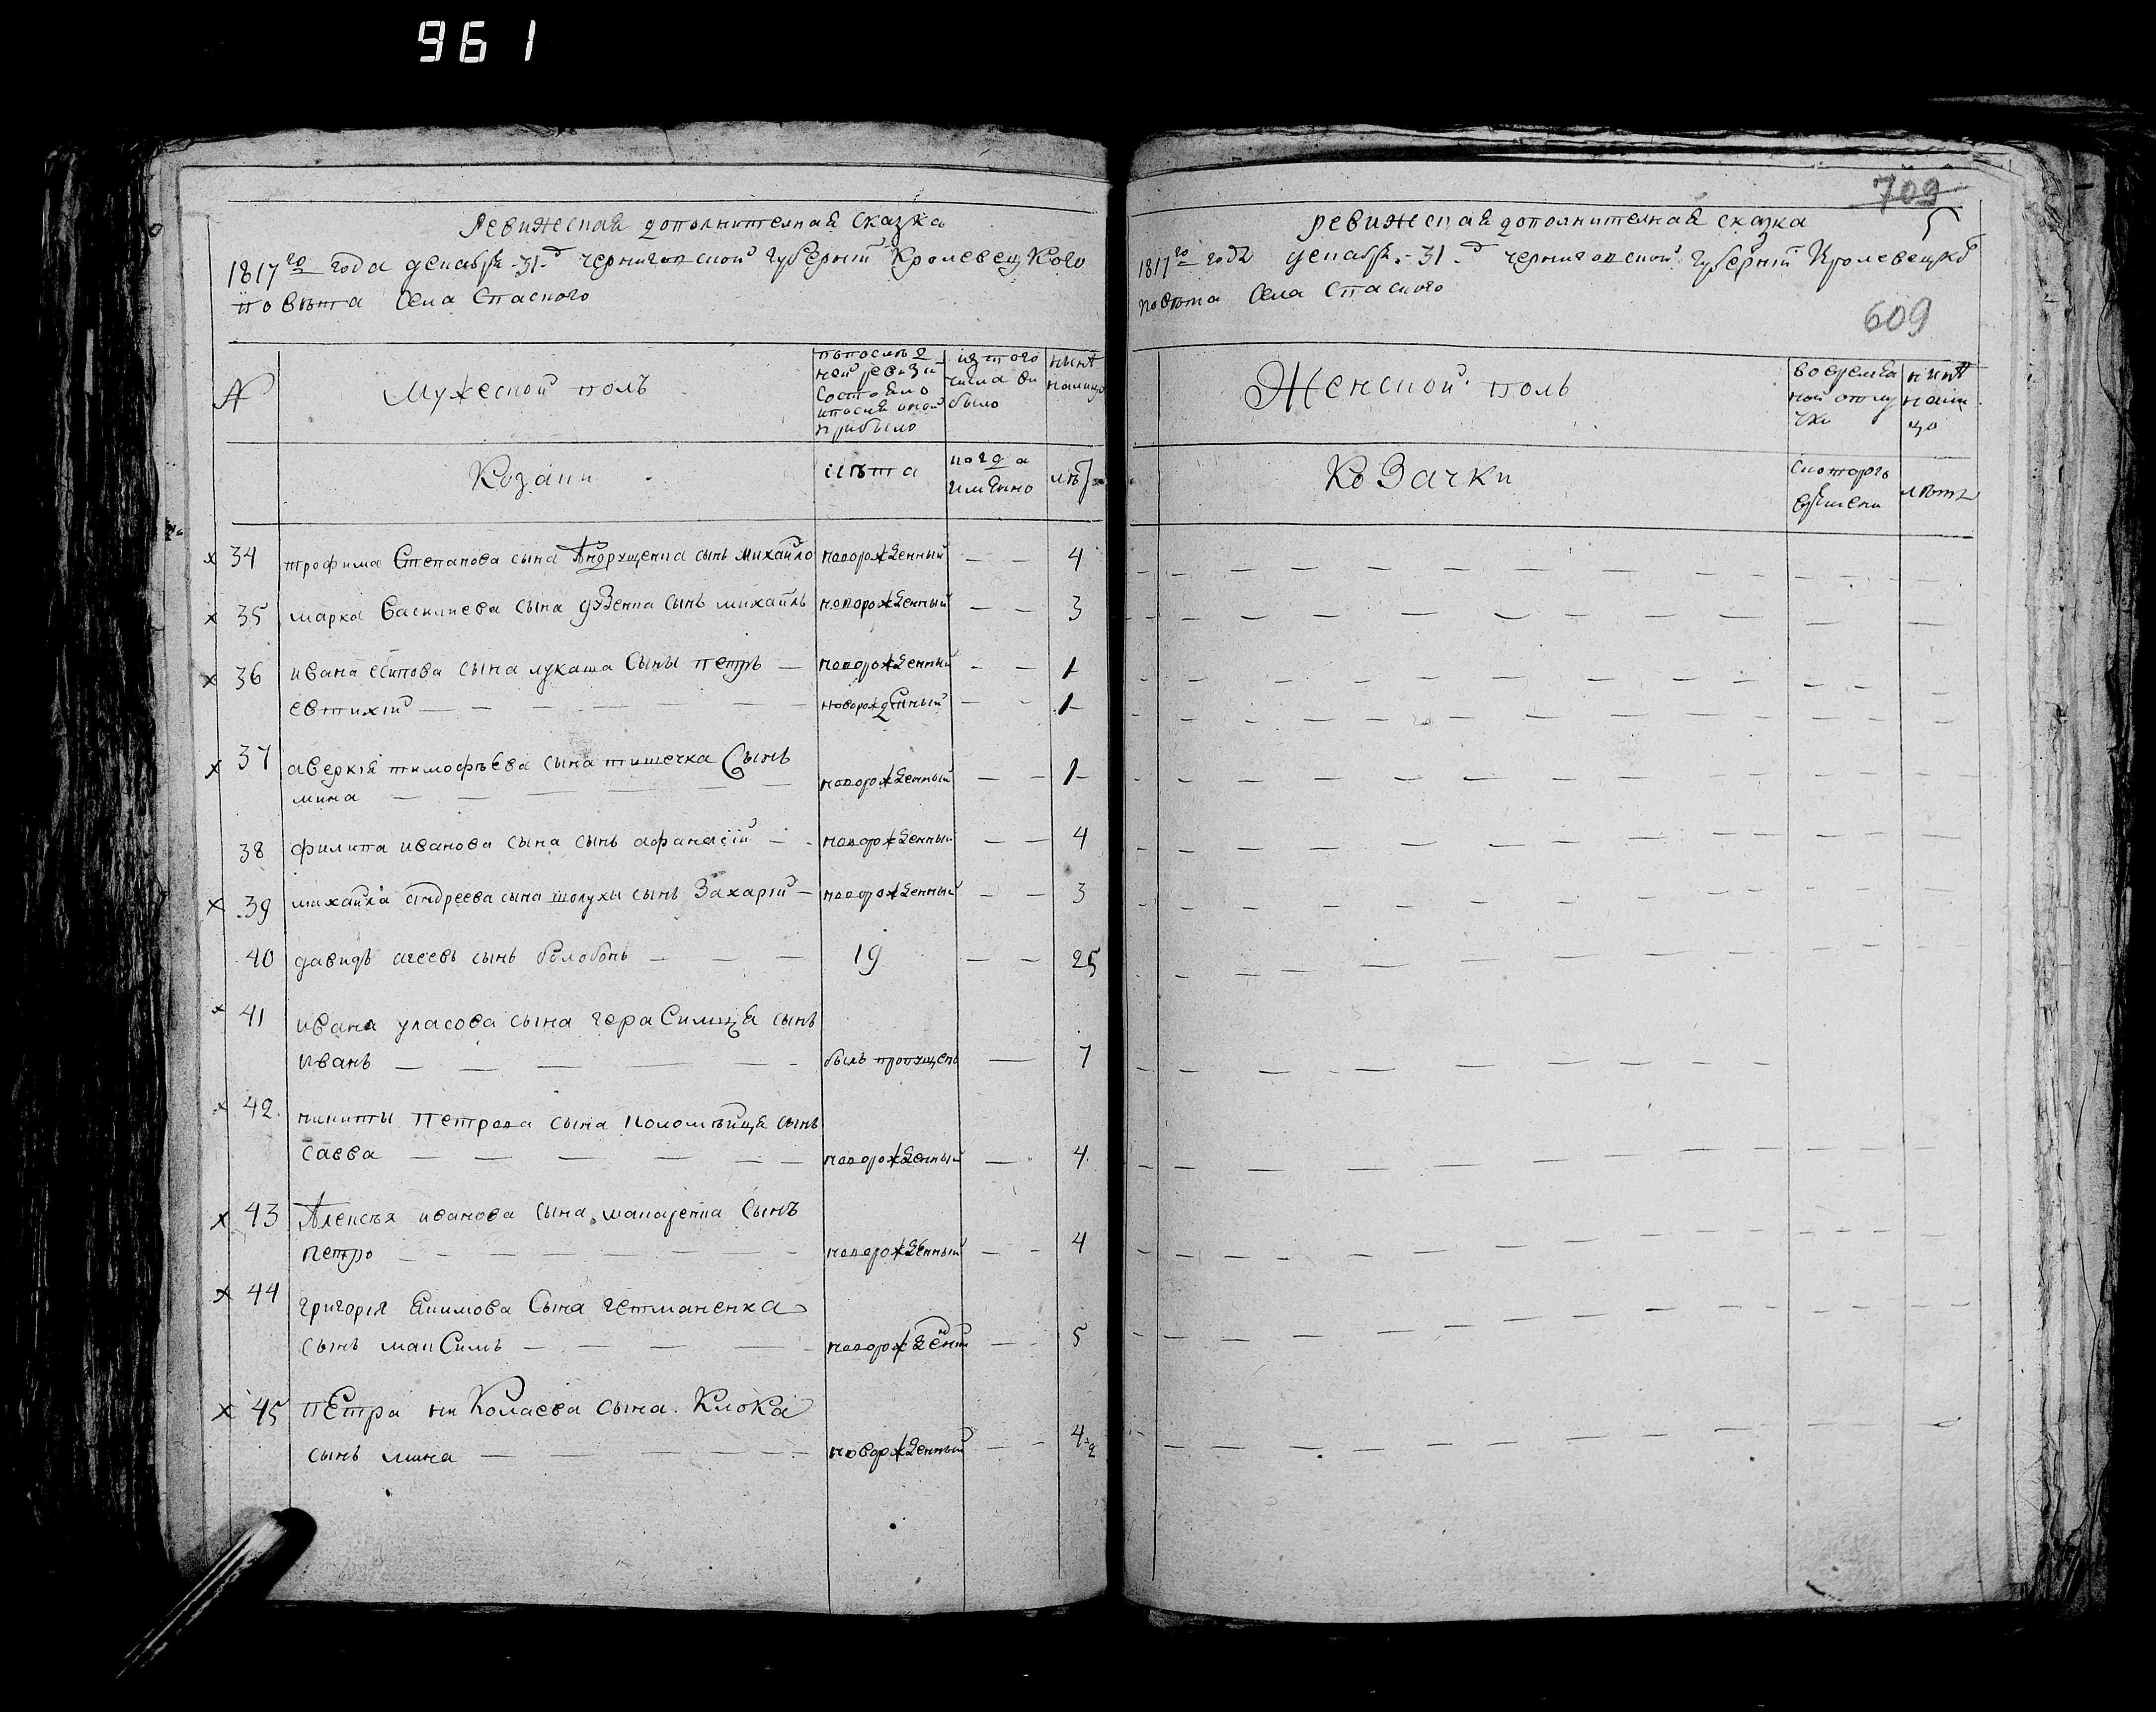 961
Ревижская дополнителная сказка
1817го года декабря 31-д черниговской губернии Кролевецкого
повѣта Села Спаского
№
Мужеской полъ
попослѣд
ней ревизи
состояло
ипослѣ оной
прибыло
изтого
числа вы
было
нынѣ
налицо
Козаки
лѣта
когда
имянно
лѣт
34 трофима Степанова сына Андрущенка сынъ михайло новорожденный — — 4
35 марка Василиева сына сынъ михайлъ новорожденный — — 3
36 ивана сына лукаша Сыны петръ — новорожденный — — 1
евтихий — — — — — — — новорожденный — — 1
37 аверкія тимофѣева сына тишечка Сынъ
мина — — — — — — новорожденный — — 1
38 филипа иванова сына сынъ афанасій — новорожденный — — 4
39 михайла андреева сына шолухи сынъ Захарій — новорожденный — — 3
40 давидъ агеевъ сынъ болобонъ — — — 19 — — 25
41 ивана уласова сына герасимца сынъ
иванъ — — — — — былъ пропущенъ — 7
42 никиты петрова сына коломѣйца сынъ
савва — — — — — — новорожденный — 4
43 Алексѣя иванова сына макаренка сынъ
петро — — — — — — — новорожденный — — 4
44 григорія Екимова Сына гетманенка
сынъ максимъ — — — — — новорожденый — — 5
45 пЕтра ни Колаева сына Клока
сынъ мина — — — — — — новорожденный — — 4
709
5
ревижская дополнителная сказка
1817го года декабря 31-д черниговской губерній Кролевецко
повѣта Села Спаского
609
Женской полъ
во времен
ной отлу
чки
нынѣ
нали
цо
КоЗачки
скоторого
времени
лѣта